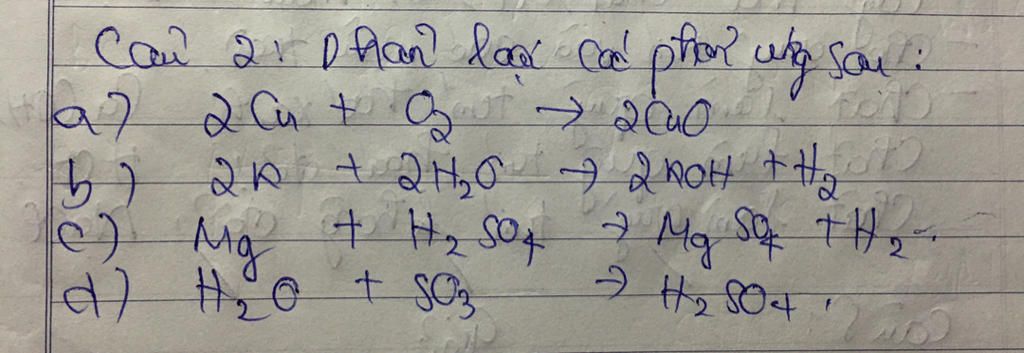 Câu 2: Phân loại các phản ứng sau:
a) 2Cu + O₂ → 2CuO
b) 2K + 2H₂O → 2KOH + H₂
c) Mg + H₂SO₄ → MgSO₄ + H₂.
d) H₂O + SO₃ → H₂SO₄.